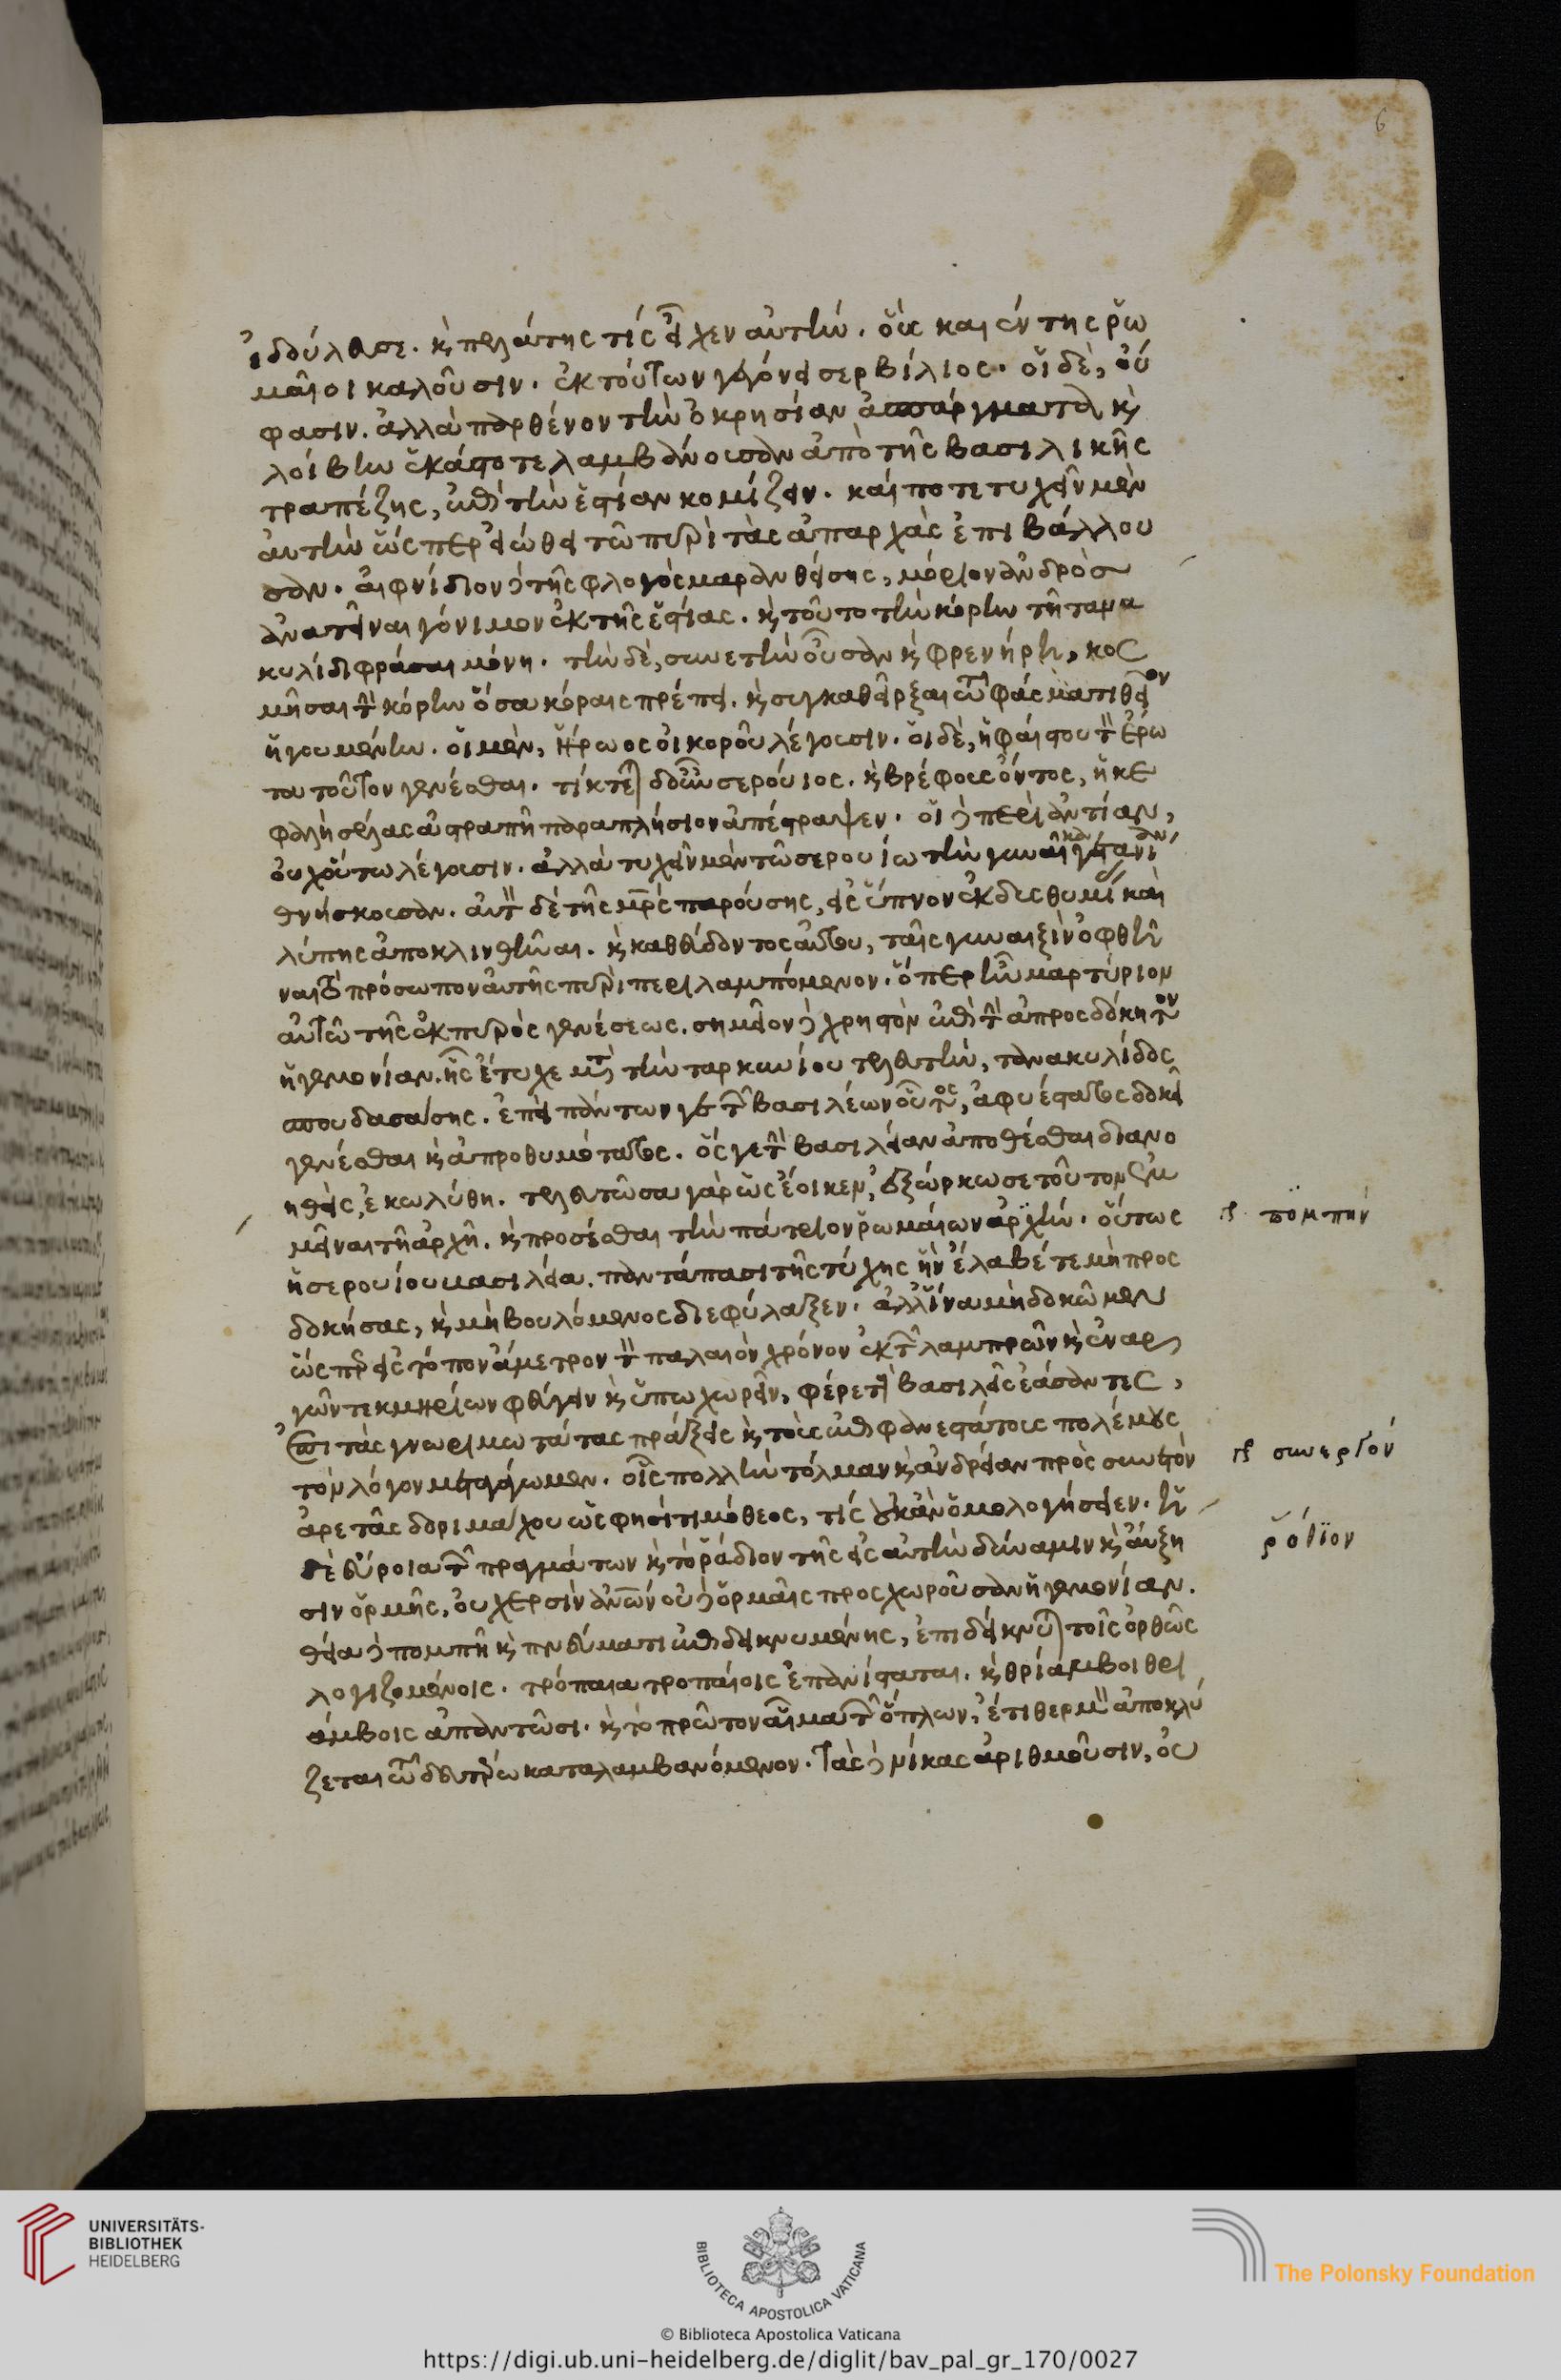 ἐδούλευσε. κ̀ πελάτης τίς εἶχεν αὐτὴν. οὓς και ἐντης ῥω
μαῖοι καλοῦσιν. ἐκ τούτων γεγόνει σερβίλιος. οἱ δὲ, οὔ
φασιν. ἀλλὰ παρθένον τὴν ὀκρησίαν ἀπάργματα κ̀
λοίβην ἑκάστοτε λαμβάνουσαν ἀπὸ τῆς βασιλικῆς
τραπέζης, ἐπὶ τὴν ἑστίαν κομίζειν. καί ποτε τυχεῖν μὲν
ἀυτὴν ὥσπερ εἰώθει τῶ πυρὶ τὰς ἀπαρχὰς ἐπιβάλλου
σαν. αἰφνίδιον δὲ τῆς φλογὸς μαρανθείσης, μόριον ἀνδρὸσ
ἀνατεῖναι γόνιμον ἐκ τῆς ἑστίας. κ̀ τοῦτο τὴν κόρην τῆ ταρα
κυλίδι φράσαι μόνη. τὴν δὲ, συνετὴν οὖσαν κ̀ φρενήρη, κοσ
μῆσαι τὴν κόρην ὅσα κόραις πρέπει. κ̀ συγκαθεῖρξαι τῶ φάσματι θεῖον
ἡγουμένην. οἱ μὲν, ἥρωος οἰκοροῦ λέγουσιν. οἱ δὲ, ἡφαίστου τὸν ἔρω
τα τοῦτον γενέσθαι. τίκτεται δοῦν σερούιος. κ̀ βρέφους ὄντος, ἡ κε
φαλὴ σέλας ἀστραπῆ παραπλήσιον ἀπέστραψεν. οἱ δὲ περὶ ἀντίαν,
ουχ οὕτω λέγουσιν. ἀλλὰ τυχεῖν μὲν τῶ σερουίω τὴν γυναῖκα γετανίαν
θνήσκουσαν. αὐτὸν δὲ τῆς μρς παρούσης, εἰς ὕπνον ἐκ δυσθυμίας καὶ
λύπης ἀποκλινθῆναι. κ̀ καθεύδοντος αὐτου, ταῖς γυναιξὶν ὀφθῆ
ναι τὸ πρόσωπον ἀυτῆς πυρὶ περιλαμπόμενον. ὅπερ ἦν μαρτύριον
αὐτῶ τῆς ἐκ πυρὸς γενέσεως. σημεῖον δὲ χρηστὸν ἐπὶ τὴν ἀπροσδόκητον
ἡγεμονίαν. ἧς ἔτυχε μετὰ τὴν ταρκυνίου τελευτὴν, τανακυλίδος
σπουδασάσης. ἐπεὶ πάντων γε τῶν βασιλέων οὗτος, ἀφυέστατος δοκεῖ
γενέσθαι κ̀ ἀπροθυμότατος. ὅς γε τὴν βασιλείαν ἀποθέσθαι διανο
ηθεὶς, ἐκωλύθη. τελευτῶσα γὰρ ὡς ἔοικεν, ἐξώρκωσε τοῦτον ἐμ
μεῖναι τῆ ἀρχῆ. κ̀ προσέσθαι τὴν πάτριον ῥωμαίων ἀρχὴν. οὕτως
ἡ σερουίου βασιλεία. παντάπασι τῆς τύχης ἣν ἔλαβέ τε μὴ προς
δοκήσας, κ̀ μὴ βουλόμενος διεφύλαξεν. ἀλλ᾽ ἵνα μὴ δοκῶμεν
ὥσπερ εἰς τόπον ἄμετρον τὸν παλαιὸν χρόνον ἐκ τῶν λαμπρῶν κ̀ ἐναρ
γῶν τεκμηρίων φεύγειν κ̀ ὑποχωρεῖν, φέρε τοὺς βασιλεῖς ἐάσαντες,
ἐπι τὰς γνωριμωτάτας πράξεις κ̀ τοὺς ἐπιφανεστάτους πολέμους
τὸν λόγον μεταγάγωμεν. οἷς πολλὴν τόλμαν κ̀ ἀνδρείαν πρὸς σιωπὸν
ἀρετᾶς δοριμάχου ὥς φησι τιμόθεος, τίς οὐκ ἂν ὁμολογήσειεν. ἡ
δὲ εὔροια τῶν πραγμάτων κ̀ τὸ ῥάδιον τῆς εἰς αὐτὴν δύναμιν κ̀ ἄυξη
σιν ὁρμῆς, ου χερσὶν ἀνῶν οὐδὲ ὁρμαῖς προςχωροῦσαν ἡγεμονίαν.
θεία δὲ πομπῆ κ̀ πνεύματι ἐπιδεικνυμένης, ἐπιδείκνυται τοῖς ὀρθῶς
λογιζομένοις. τρόπαια τροπαίοις ἐπανίσταται. κ̀ θρίαμβοι θρι
άμβοις ἀπαντῶσι. κ̀ τὸ πρῶτον αἷμα τῶν ὅπλων, ἔτι θερμὸν ἀποκλύ
ζεται τῶ δευτέρω καταλαμβανόμενον. τὰς δὲ νίκας ἀριθμοῦσιν, οὐ
γρ πομπὴν
γρ συνεργὸν
ῥόθιον
6
UNIVERSITÄTS-
BIBLIOTHEK
HEIDELBERG
BIBLIOTECA APOSTOLICA VATICANA
The Polonsky Foundation
© Biblioteca Apostolica Vaticana
https://digi.ub.uni-heidelberg.de/diglit/bav_pal_gr_170/0027